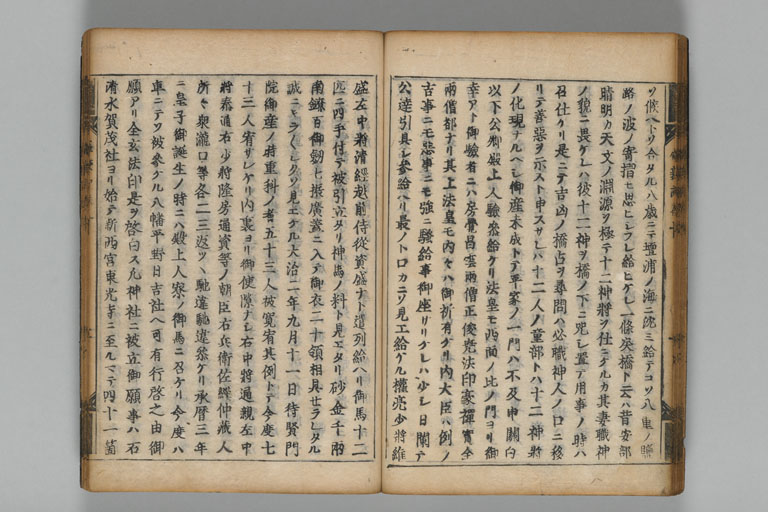 ソ候ヘトソ合タル八歳ニテ壇浦ノ海ニ沈ミ給テコソ八重ノ
路ノ波ノ寄摺モ思ヒシラレ給ヒケレ一條戻橋ト云ハ昔安部
晴明カ天文ノ淵源ヲ極テ十二神將ヲ仕ニケルカ其妻職神
ノ貌ニ畏ケレハ彼十二神ヲ橋ノ下ニ呪シ置テ用事ノ時ハ
召仕ケリ是ニテ吉凶ノ橋占ヲ尋問ハ必職神人ノ口ニ移
リテ善惡ヲ示スト申スサレハ十二人ノ童部トハ十二神將
ノ化現ナルヘシ御産未成トテ平家ノ一門ハ不及申關白
以下公卿殿上人馳參給ケリ法皇モ西面ノ北ノ門ヨリ御
幸アリ御驗者ニハ房覺昌雲兩僧正俊堯法印豪禪實全
兩僧都ナリ其上法皇モ内々ハ御祈有ケリ内大臣ハ例ノ
吉事ニモ惡事ニモ強ニ騒給事御座サリケレハ少シ日闌テ
公達引具シ參給ヘリ最ノトロカニソ見エ給ケル權亮少將維
盛左中將清經越前侍從資盛ナト遣列給ヘリ御馬十二
匹ニ四手付テ被引立タリ神馬ノ料ト見エタリ砂金千兩
南鐐百御劒七振廣蓋ニ入テ御衣二十領相具セラレタル
誠ニキラ〱シクソ見エケル大治二年九月十一日待賢門
院御産ノ時重科ノ者五十三人被寛宥其例トテ今度七
十三人宥サレケリ内裏ヨリ御使隙ナシ右中將通親左中
將泰通右少將隆房通資等ノ朝臣右兵衛佐經仲藏人
所々衆瀧口等各二三返ツヽ馳違馳違參ケリ承暦三年
ニ皇子御誕生ノ時ニハ殿上人寮ノ御馬ニ召ケリ今度ハ
車ニテソ被參ケル八幡平野日吉社ヘ可有行啓之由御
願アリ全玄法印是ヲ啓白ス凡神社ニ被立御願事ハ石
清水賀茂社ヨリ始テ新西宮東光寺ニ至ルマテ四十一箇